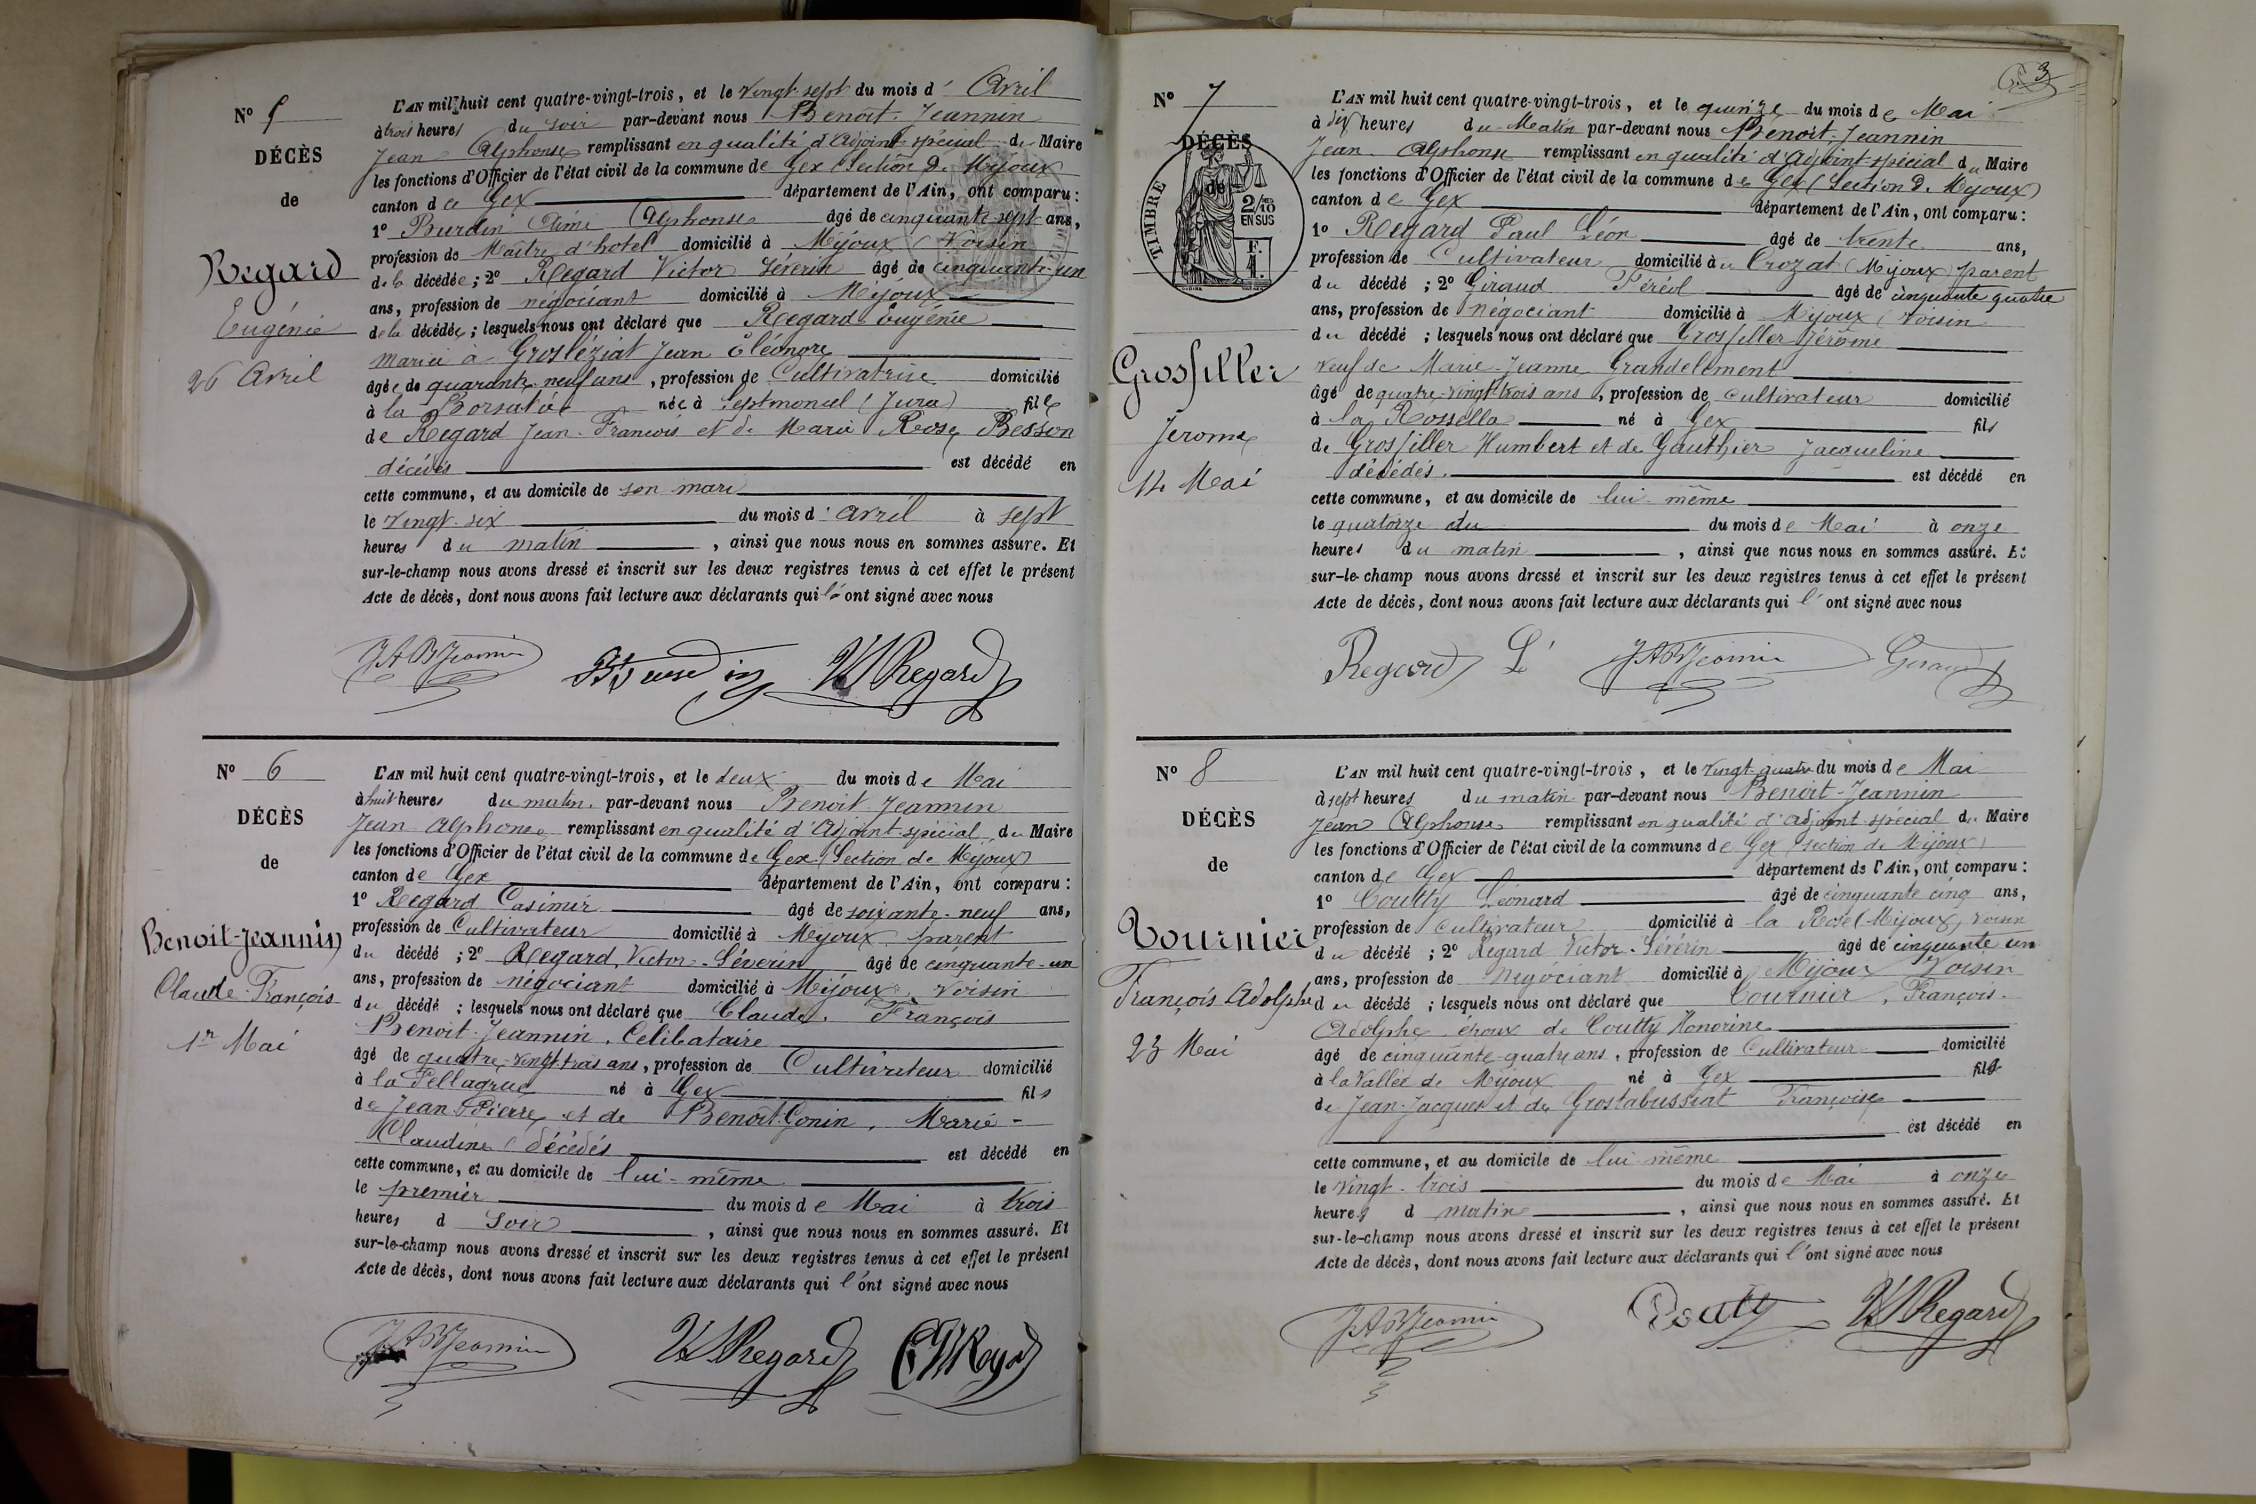 N° 5
DÉCÈS
de
Regard
Eugénie
26 Avril
L'AN mil huit cent quatre-vingt-trois, et le vingt sept du mois d' Avril
à trois heures du soir par-devant nous Benoit-Jeannin
Jean Alphonse remplissant en qualité d'Adjoint spécial du Maire
les fonctions d'Officier de l'état civil de la commune de Gex (Section de Mijoux
canton de Gex département de l'Ain, ont comparu :
1° Burdin Aimé Alphonse âgé de cinquante sept ans,
profession de Maître d'hotel domicilié à Mijoux (Voisin
de la décédée ; 2° Regard Victor Séverin âgé de cinquante-un
ans, profession de négociant domicilié à Mijoux
de la décédée ; lesquels nous ont déclaré que Regard Eugénie
mariée à Grosléziat Jean Eléonore
âgée de quarante-neuf ans, profession de Cultivatrice domicilié
à la née à Septmoncel (Jura) fille
de Regard Jean-François et de Marie Rose Besson
décédés est décédé en
cette commune, et au domicile de son mari
le vingt-six du mois d' avril à sept
heures du matin, ainsi que nous nous en sommes assuré. Et
sur-le-champ nous avons dressé et inscrit sur les deux registres tenus à cet effet le présent
Acte de décès, dont nous avons fait lecture aux déclarants qui l' ont signé avec nous
JABJeannin Burdin VSRegard
N° 6
DÉCÈS
de
Benoit-Jeannin
Claude-François
1er Mai
L'AN mil huit cent quatre-vingt-trois, et le deux du mois de Mai
à huit heures du matin par-devant nous Benoit-Jeannin
Jean Alphonse remplissant en qualité d'Adjoint-spécial du Maire
les fonctions d'Officier de l'état civil de la commune de Gex (Section de Mijoux)
canton de Gex département de l'Ain, ont comparu :
1° Regard Casimir âgé de soixante-neuf ans,
profession de Cultivateur domicilié à Mijoux parent
du décédé ; 2° Regard, Victor-Séverin âgé de cinquante-un
ans, profession de négociant domicilié à Mijoux, voisin
du décédé ; lesquels nous ont déclaré que Claude, François
Benoit-Jeannin, Célibataire
âgé de quatre-vingt-trois ans, profession de Cultivateur domicilié
à la Pellagrue né à Gex fils
de Jean Pierre et de Benoit-Gonin, Marie-
Claudine (décédés est décédé en
cette commune, et au domicile de lui-même
le premier du mois de Mai à trois
heures d soir, ainsi que nous nous en sommes assuré. Et
sur-le-champ nous avons dressé et inscrit sur les deux registres tenus à cet effet le présent
Acte de décès, dont nous avons fait lecture aux déclarants qui l'ont signé avec nous
JABJeannin VSRegard
3
N° 7
DÉCÈS
de
TIMBRE
2/10
EN SUS
F.
Grosfiller
Jerome
14 Mai
L'AN mil huit cent quatre-vingt-trois, et le quinze du mois de Mai
à dix heures du Matin par-devant nous Benoit-Jeannin
Jean Alphonse remplissant en qualité d'Adjoint-spécial du Maire
les fonctions d'Officier de l'état civil de la commune de Gex (Section de Mijoux)
canton de Gex département de l'Ain, ont comparu :
1° Regard Paul Léon âgé de trente ans,
profession de Cultivateur domicilié à u Crozat (Mijoux) parent
du décédé ; 2° Giraud Féréol âgé de cinquante quatre
ans, profession de négociant domicilié à Mijoux (voisin
du décédé ; lesquels nous ont déclaré que Grosfiller Jérôme
veuf de Marie-Jeanne Grandclément
âgé de quatre-vingt-trois ans, profession de cultivateur domicilié
à la Rossella né à Gex fils
de Grosfiller Humbert et de Gauthier Jacqueline
décédés. est décédé en
cette commune, et au domicile de lui-même
le quatorze du du mois de Mai à onze
heures du matin, ainsi que nous nous en sommes assuré. Et
sur-le-champ nous avons dressé et inscrit sur les deux registres tenus à cet effet le présent
Acte de décès, dont nous avons fait lecture aux déclarants qui l' ont signé avec nous
Regard L' JABJeannin Giraud
N° 8
DÉCÈS
de
Tournier
François Adolphe
23 Mai
L'AN mil huit cent quatre-vingt-trois, et le vingt-quatre du mois de Mai
à sept heures du matin par-devant nous Benoit-Jeannin
Jean Alphonse remplissant en qualité d'adjoint-spécial du Maire
les fonctions d'Officier de l'état civil de la commune de Gex (section de Mijoux)
canton de Gex département de l'Ain, ont comparu :
1° Coutty Léonard âgé de cinquante cinq ans,
profession de cultivateur domicilié à la Rose (Mijoux) voisin
du décédé ; 2° Regard Victor-Sévérin âgé de cinquante un
ans, profession de négociant domicilié à Mijoux Voisin
du décédé ; lesquels nous ont déclaré que Tournier, François.
Adolphe époux de Coutty Honorine
âgé de cinquante-quatre ans, profession de Cultivateur domicilié
à la Vallée de Mijoux né à Gex fils
de Jean-Jacques et de Grostabussiat Françoise
est décédé en
cette commune, et au domicile de lui-même
le vingt-trois du mois de Mai à onze
heures d matin, ainsi que nous nous en sommes assuré. Et
sur-le-champ nous avons dressé et inscrit sur les deux registres tenus à cet effet le présent
Acte de décès, dont nous avons fait lecture aux déclarants qui l'ont signé avec nous
JABJeannin Coutty VSRegard